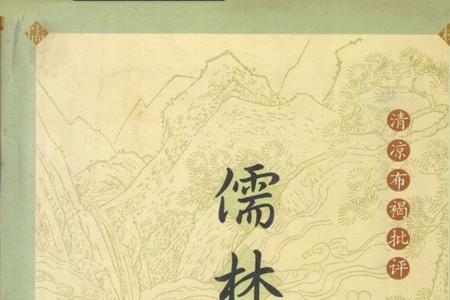 清凉布褐批评
儒林
儒